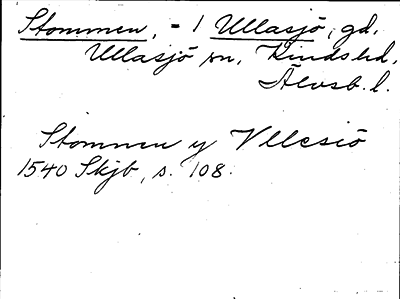 Stommen, - 1 Ullasjö, gd.
Ullasjö sn, Kinds hd,
Älvsb. l.
Stommen y Vllesiö
1540 Skjb, s. 108.